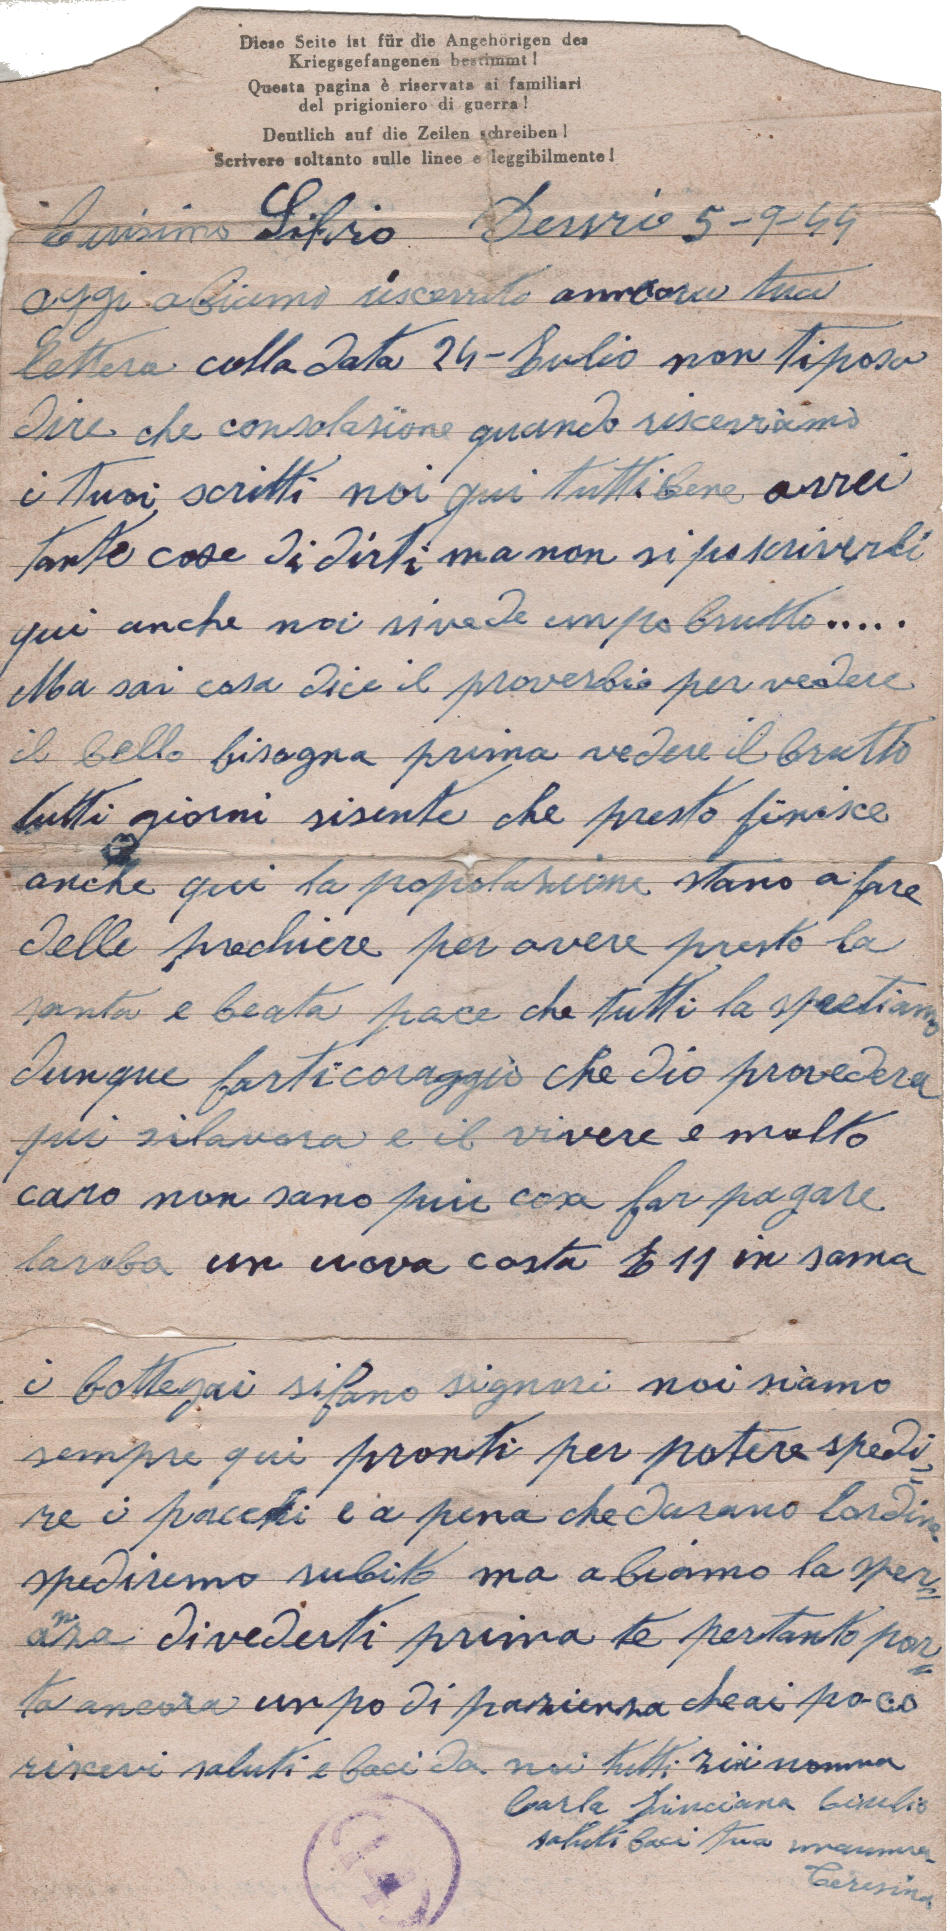 Diese Seite ist für die Angehörigen des
Kriegsgefangenen bestimmt!
Questa pagina è riservata ai familiari
del prigioniero di guerra!
Deutlich auf die Zeilen schreiben!
Scrivere soltanto sulle linee e leggibilmente!
Carisimo Silvio 5-9-44
oggi abiamo riscevuto ancora tua
lettera colla data 24-Lulio non ti poso
dire che consolasione quando riscevviamo
i tuoi scritti noi qui tutti bene avrei
tante cose di dirti ma non si po scriverli
qui anche noi si vede un po brutto.....
Ma sai cosa dice il proverbio per vedere
il bello bisogna prima vedere il brutto
tutti giorni si sente che presto finisce
anche qui la popolasione stano a fare
delle prechiere per avere presto la
santa e beata pace che tutti la spetiamo
dunque farti coraggio che dio provedera
qui si lavora e il vivere e molto
caro non sano piu cosa far pagare
la roba un uova costa £ 11 in soma
i bottegai si fano signori noi siamo
sempre qui pronti per potere spedi-
re i pacchi e a pena che darano lordine
spediremo subito ma abiamo la sper=
anza di vederti prima te pertanto por=
ta ancora un po di pasiensa che ai poco
riscevi saluti e baci da noi tutti zii nonna
Carla Linciana Giulio
saluti baci tua mamma
Teresina